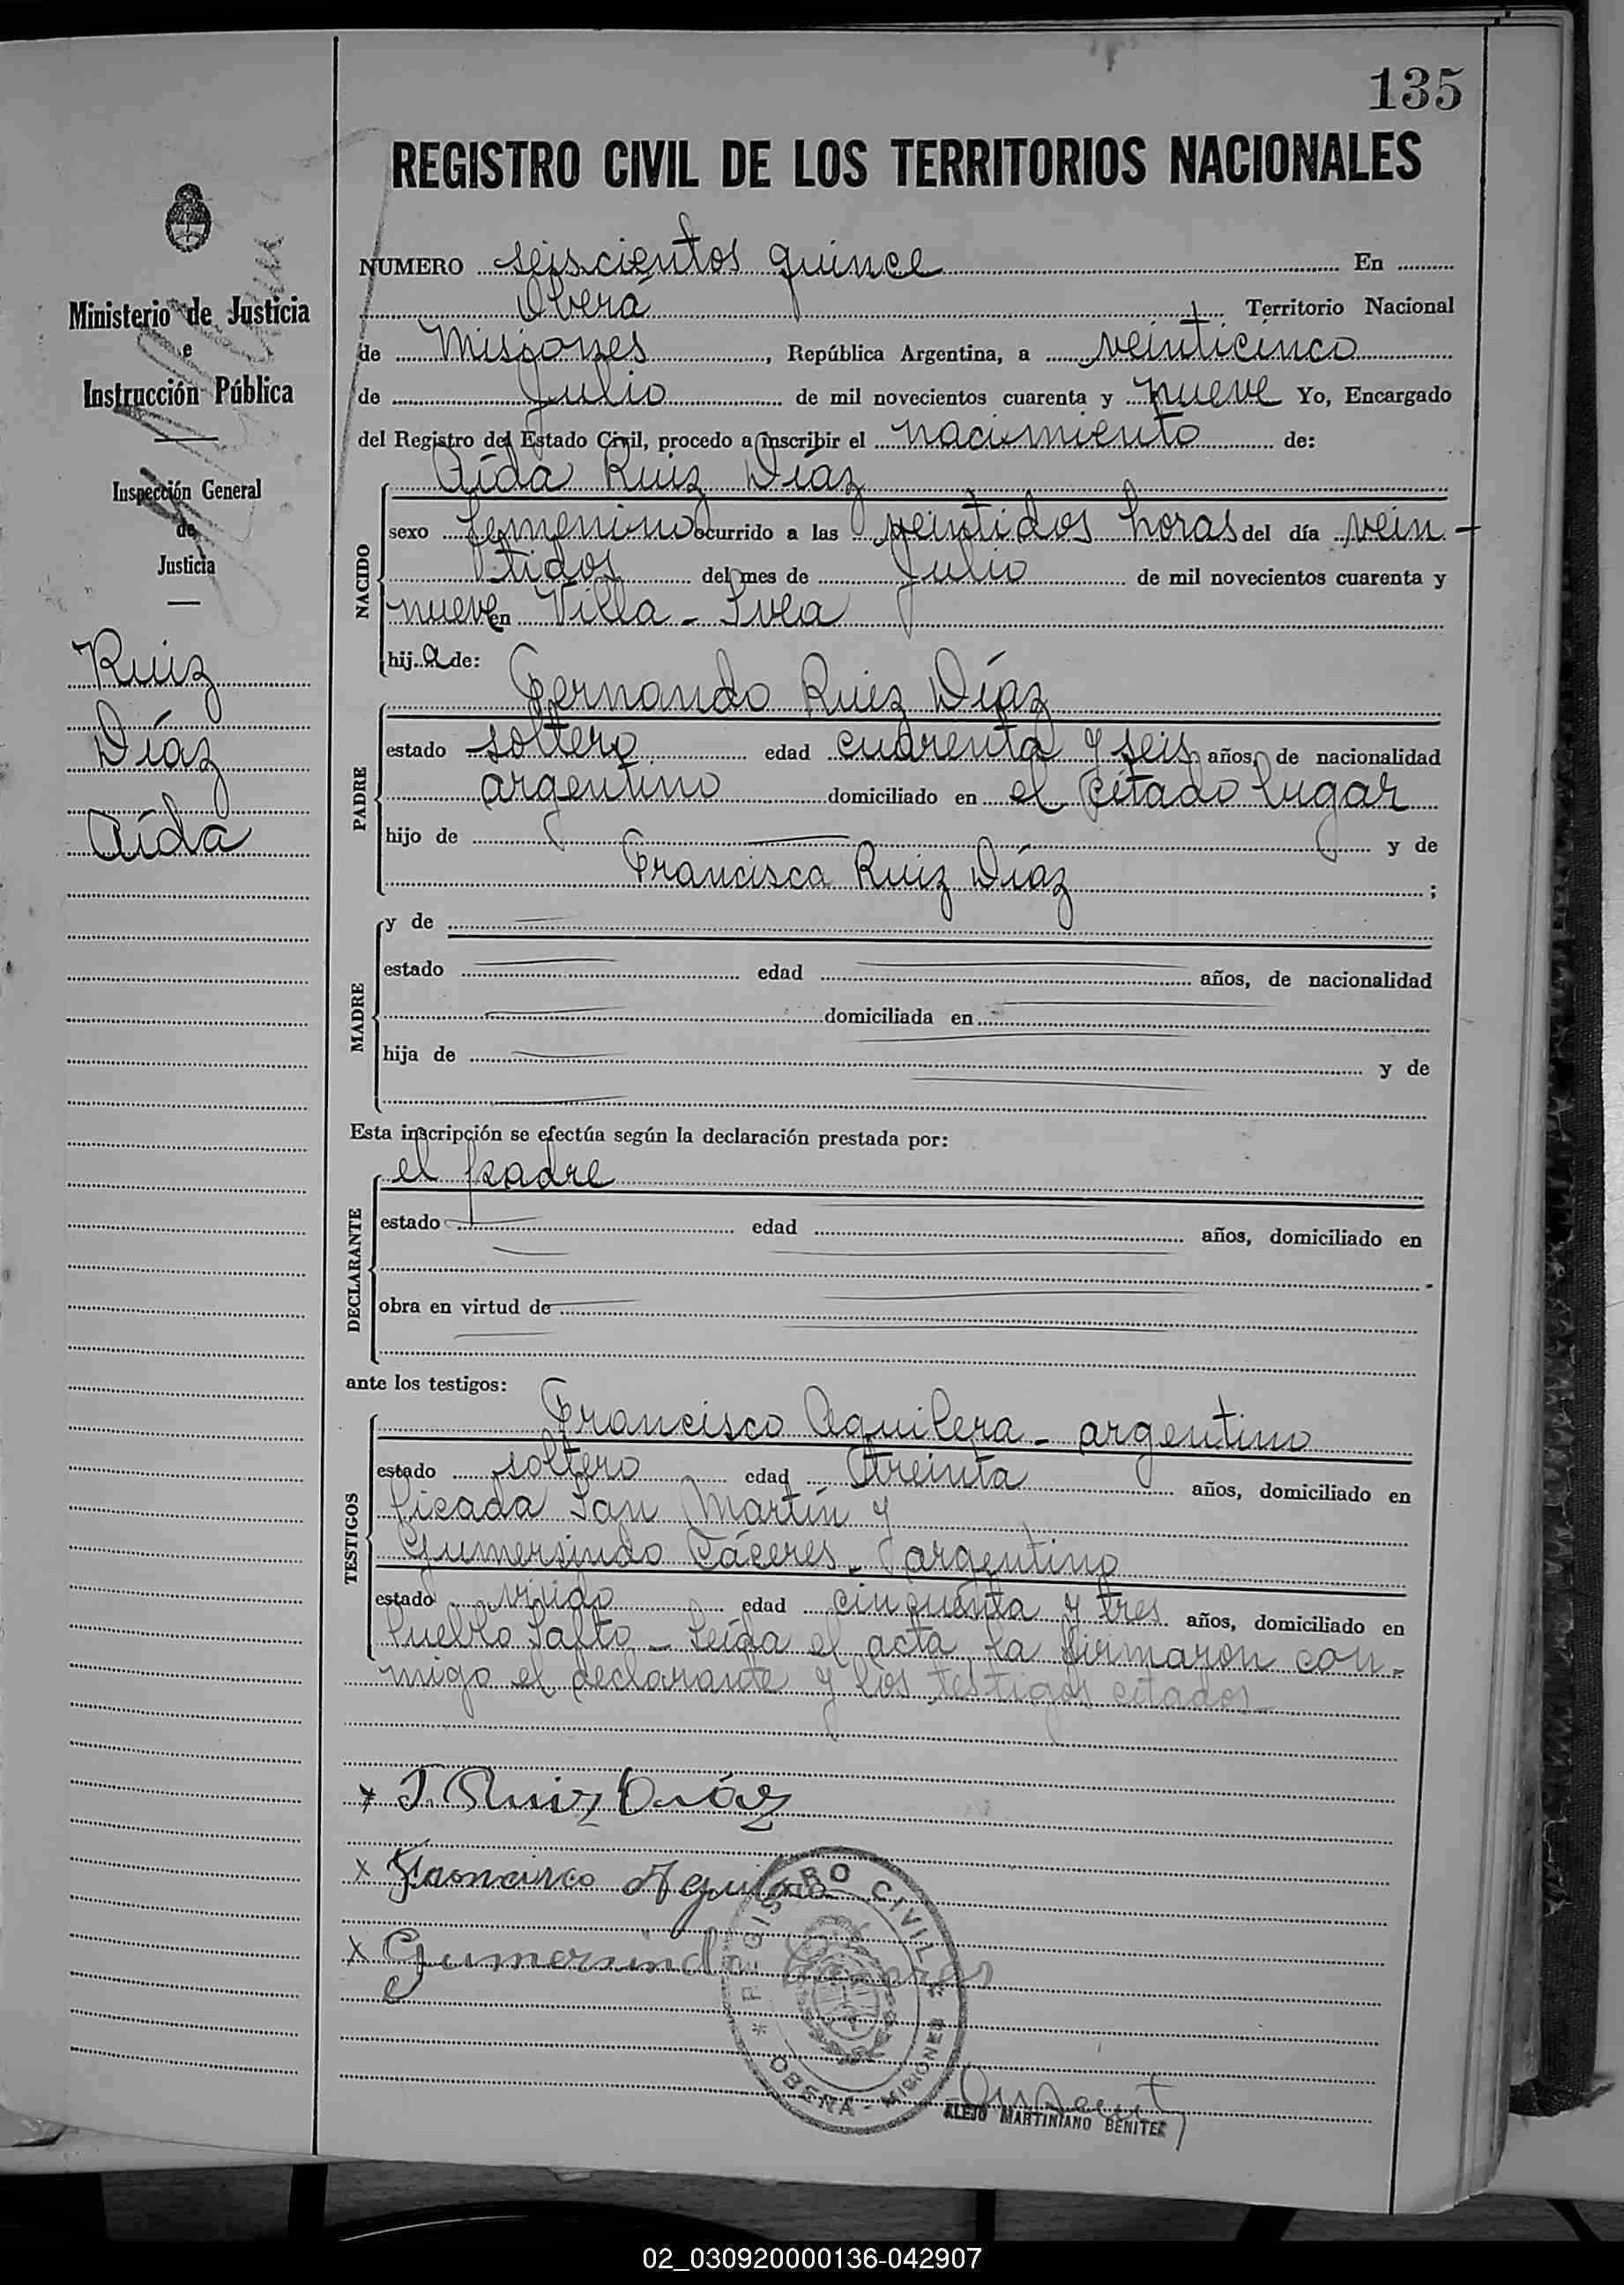 135
REGISTRO CIVIL DE LOS TERRITORIOS NACIONALES
NUMERO seiscientos quince En
Oberá Territorio Nacional
de Misiones, República Argentina, a veinticinco
de Julio de mil novecientos cuarenta y nueve Yo, Encargado
del Registro del Estado Civil, procedo a inscribir el nacimiento de:
Aída Ruiz Díaz
NACIDO
sexo femenino ocurrido a las veintidos horas del día vein-
tidos del mes de Julio de mil novecientos cuarenta y
nueve en Villa - Svea
hija de:
Fernando Ruiz Díaz
PADRE
estado soltero edad cuarenta y seis años, de nacionalidad
argentino domiciliado en el citado lugar
hijo de y de
Francisca Ruiz Díaz ;
MADRE
y de
estado edad años, de nacionalidad
domiciliada en
hija de y de
Esta inscripción se efectúa según la declaración prestada por:
el padre
DECLARANTE
estado edad años, domiciliado en
obra en virtud de
ante los testigos:
Francisco Aguilera - argentino
TESTIGOS
estado soltero edad treinta años, domiciliado en
Picada San Martín y
Gumersindo Cáceres - argentino
estado viudo edad cincuenta y tres años, domiciliado en
Pueblo Salto - Leída el acta, la firmaron con-
migo el declarante y los testigos citados -
x F. Ruiz Díaz
x Francisco Aguilera
x Gumersindo Caceres
* REGISTRO CIVIL *
OBERÁ - MISIONES
ALEJO MARTINIANO BENITEZ
Ministerio de Justicia
e
Instrucción Pública
Inspección General
de
Justicia
Ruiz
Díaz
Aída
02_030920000136-042907